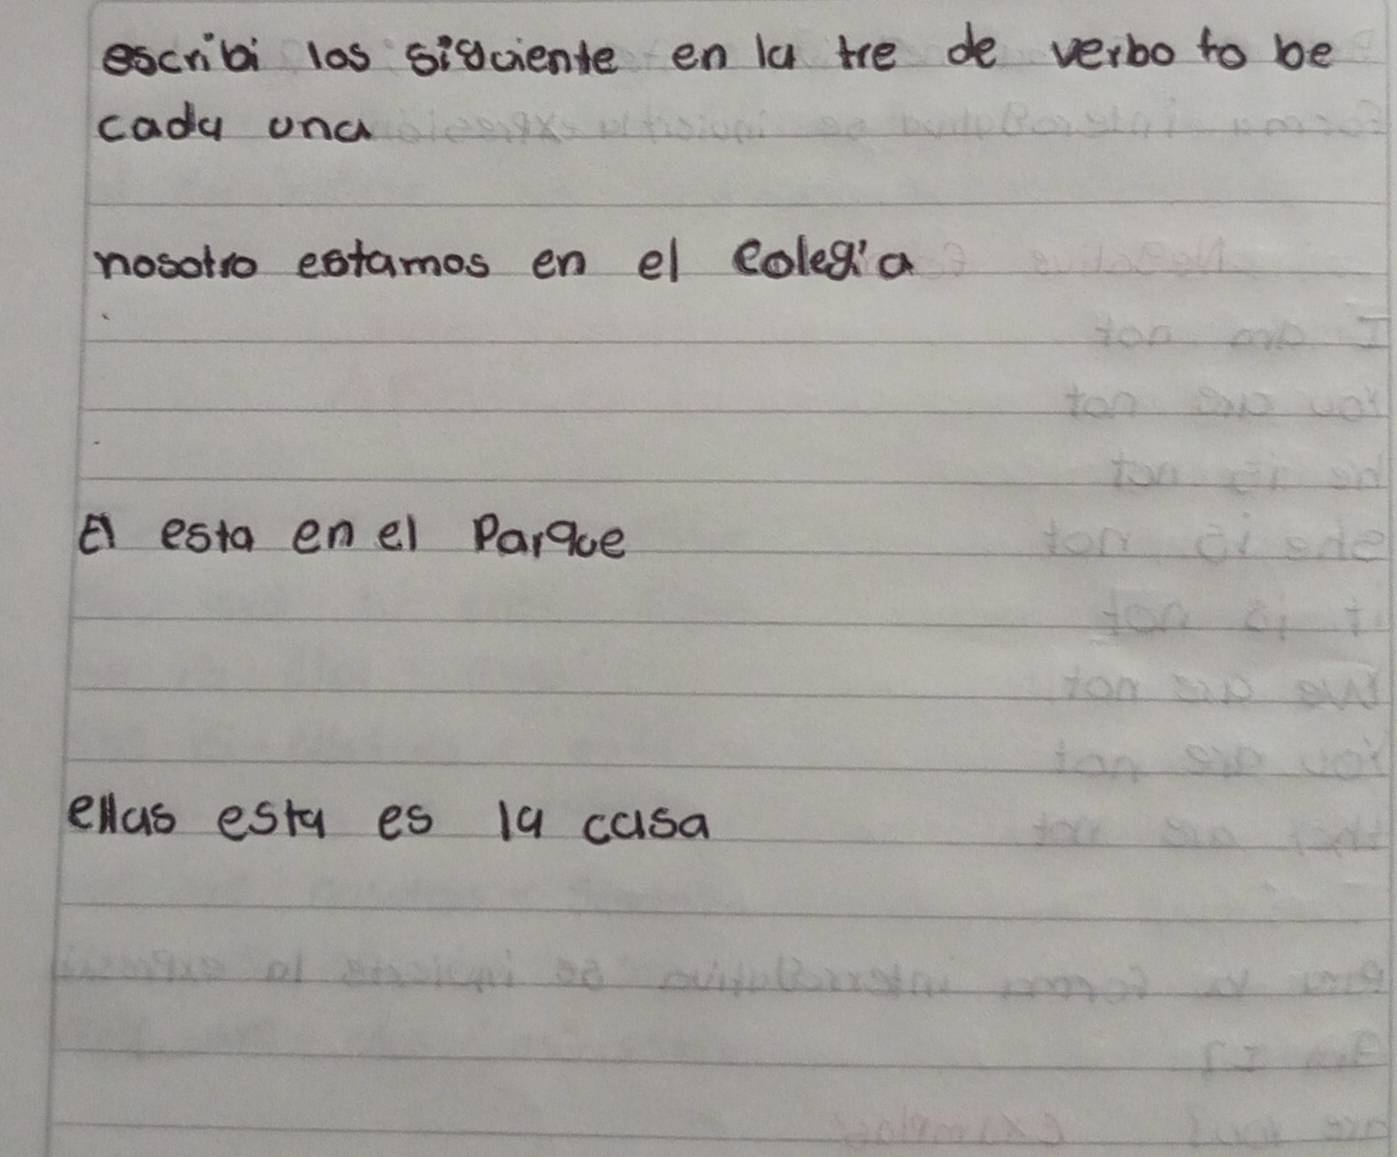 escribi los siguiente en la tre de verbo to be
cada una
nosotro estamos en el colegia
El esta en el Parque
ellas esta es la casa